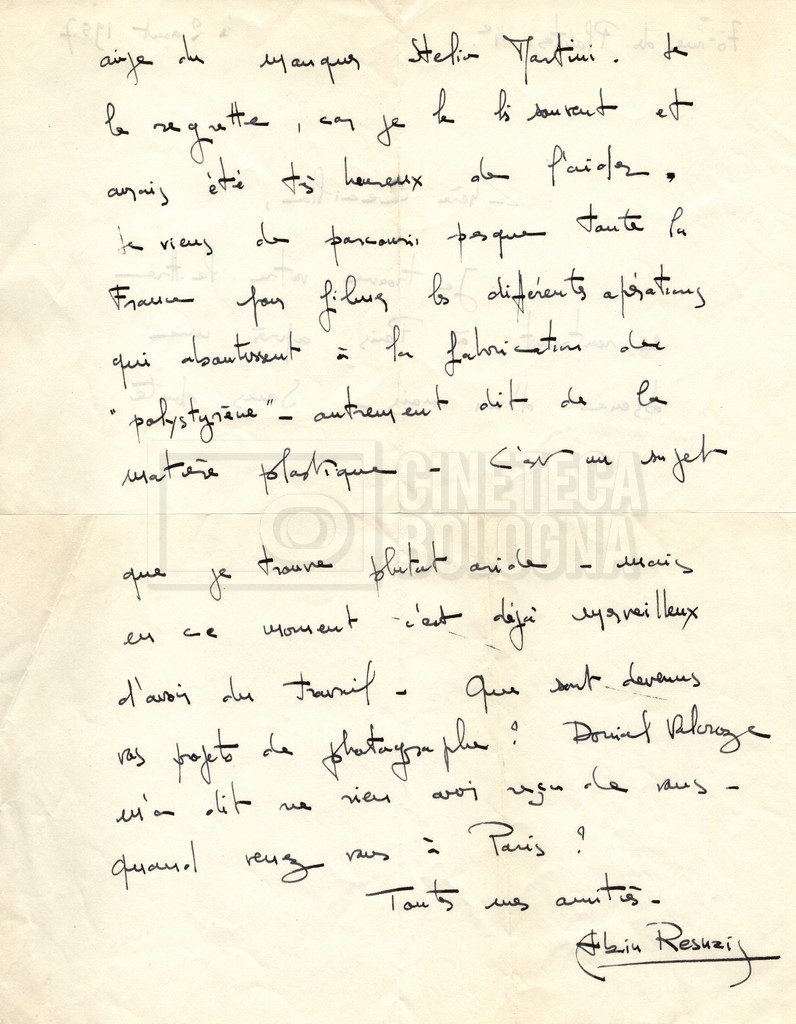 ai-je du manquer Stelio Martini. Je
le regrette, car je le lis souvent et
aurais été très heureux de l'aider.
Je viens de parcourir presque toute la
France pour filmer les différentes opérations
qui aboutissent à la fabrication du
"polystyrène" - autrement dit de la
matière plastique - C'est un sujet
CINETECA
BOLOGNA
que je trouve plutot aride - mais
en ce moment c'est déjà merveilleux
d'avoir du travail - Que sont devenus
vos projets de photographe ? Doniol Valcroze
m'a dit ne rien avoir reçu de vous -
quand venez vous à Paris ?
Toutes mes amitiés -
Alain Resnais